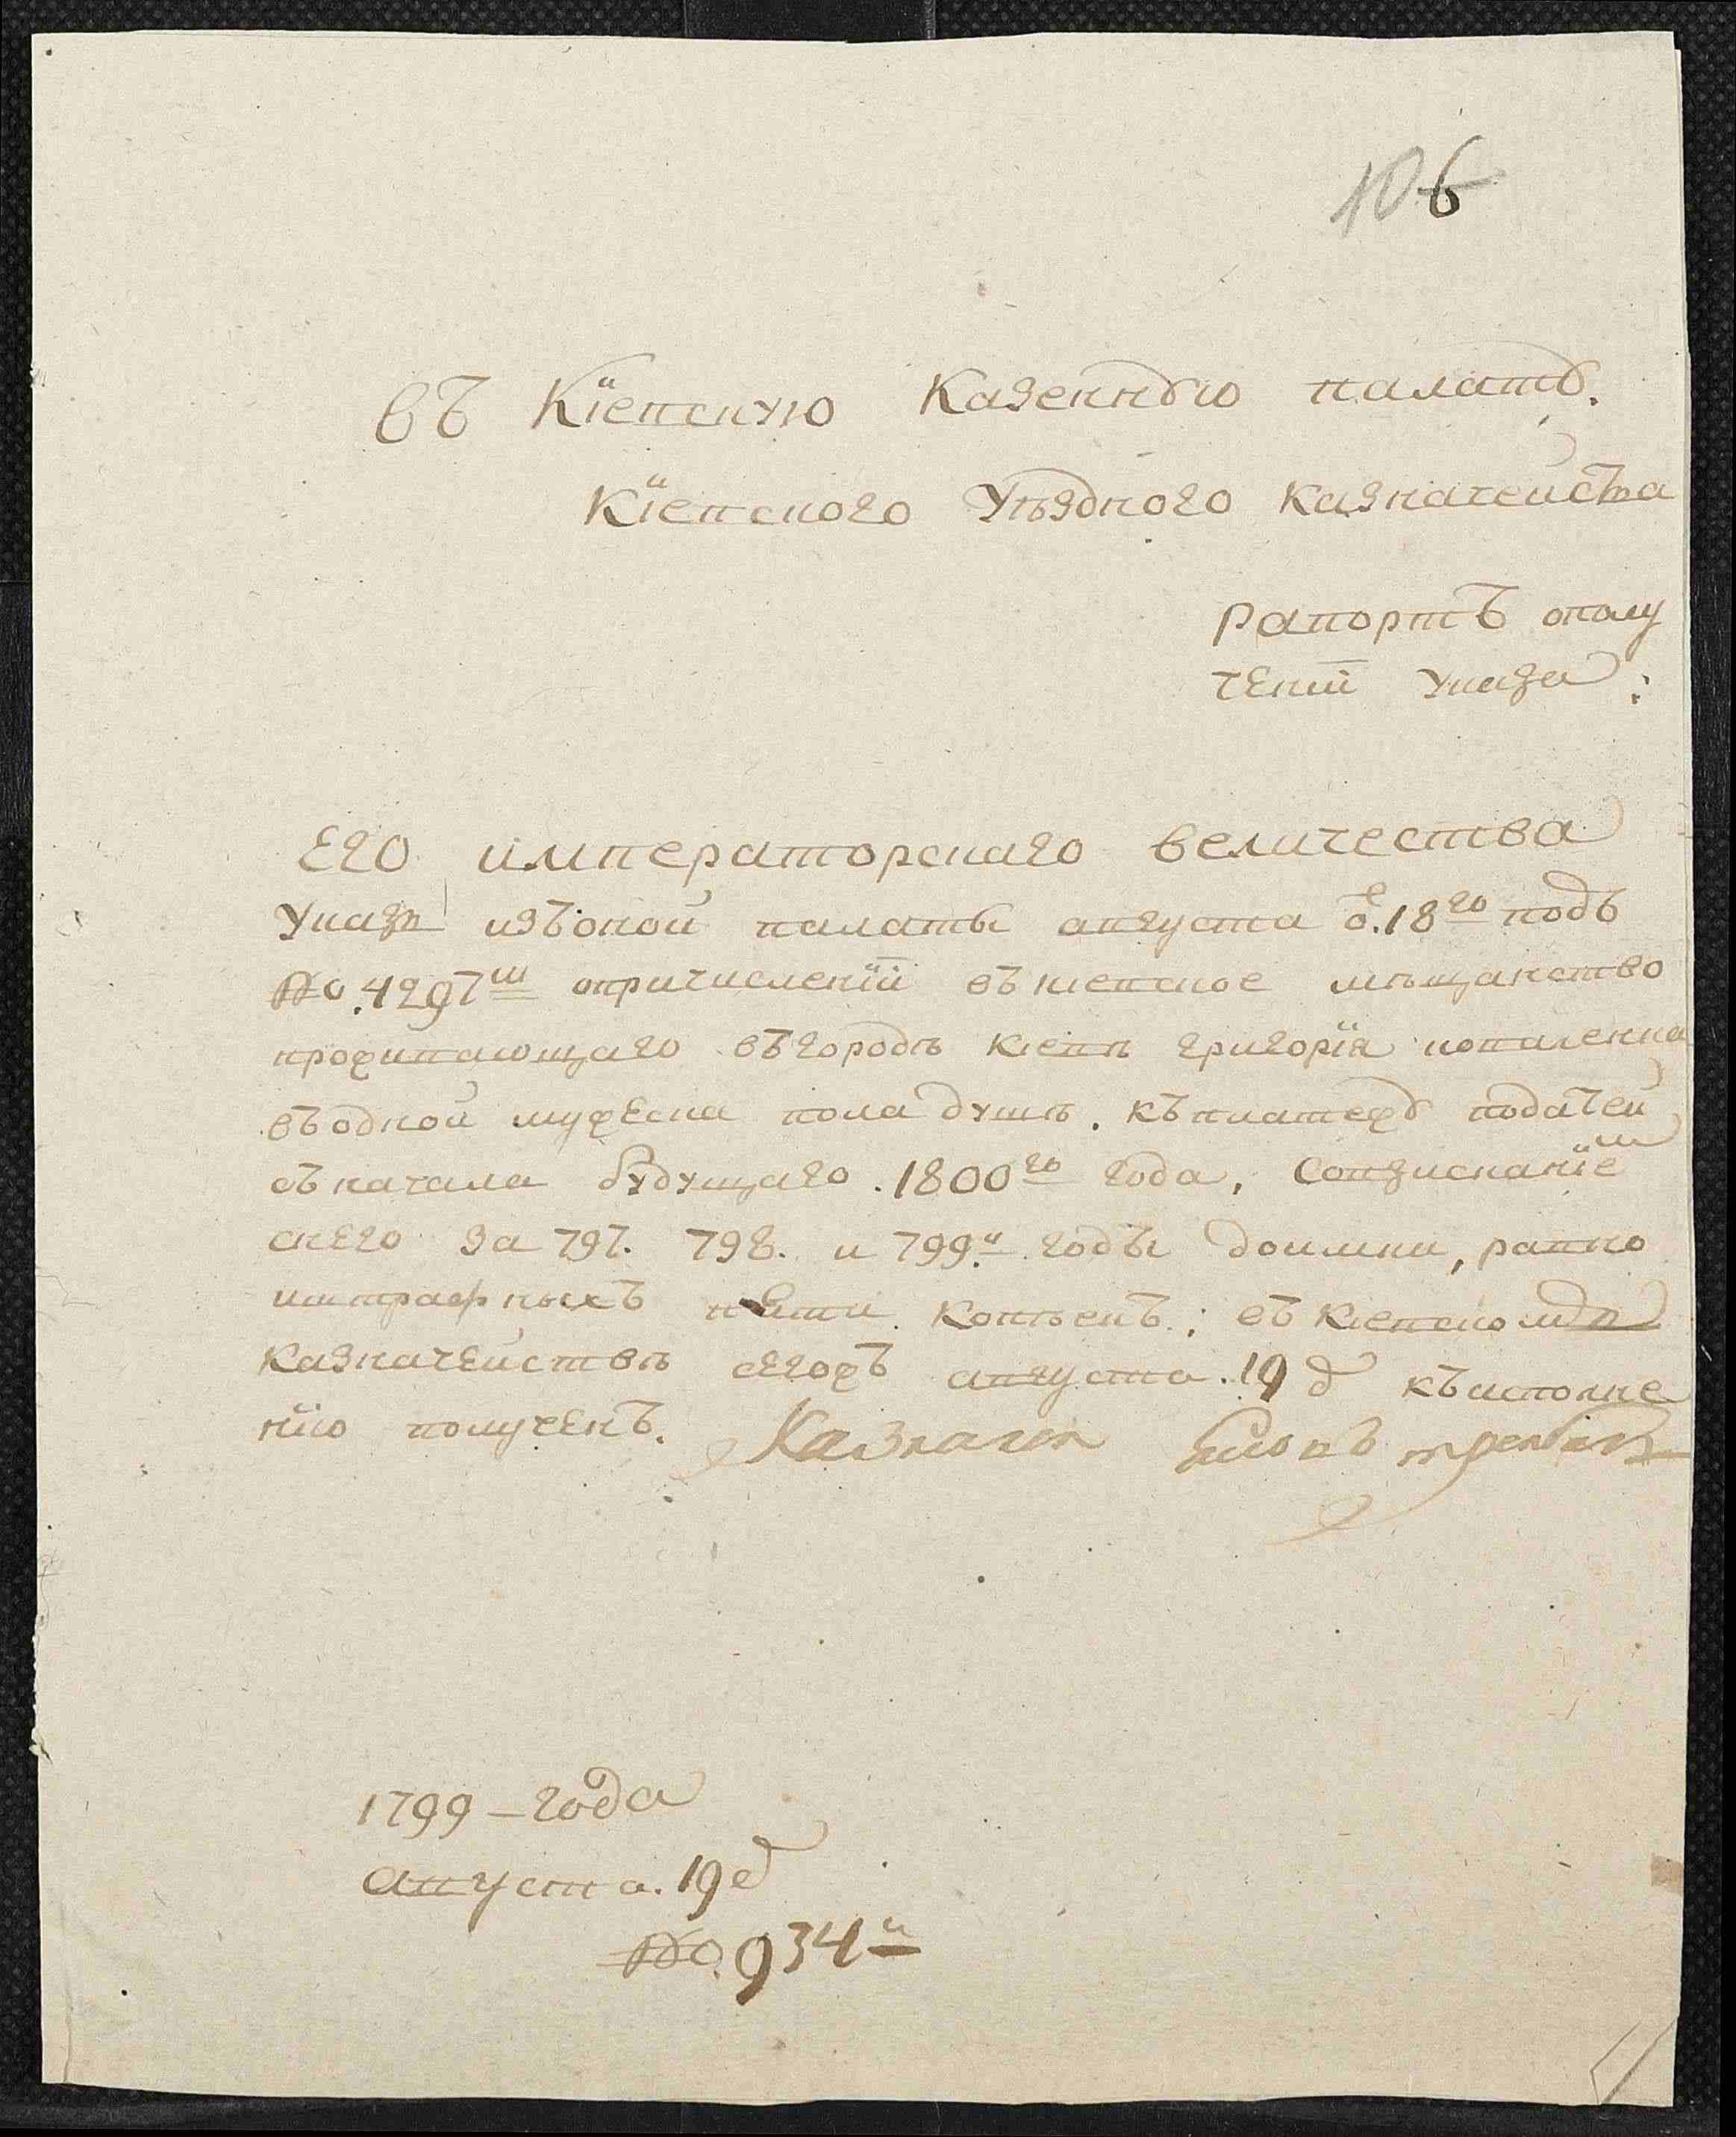 10 6
Въ Кïевскую Казенную палату.
Кïевского Уѣздного Казначейства
Рапортъ ополу
ченïи указа:
Его императорскаго величества
Указъ изъоной палаты августа 18го подъ
№. 4297ш опричисленïи въкïевское мѣщанство
проживающаго въгородѣ кïевѣ григорïя коваленка
въодной мужеска пола душѣ. къплатежу податей
съначала будущаго. 1800го года, совзисканïем
снего за 797. 798. и 799й. годы доимки, равно
иштрафныхъ пяти копѣекъ; въ кïевском
казначействѣ сегожъ августа. 19 д къисполне
нïю полученъ. Казначей
1799 – года
августа. 19 д
№. 934й